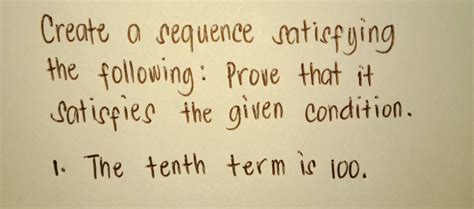 Create a sequence satisfying
the following: Prove that it
satisfies the given condition.
1. The tenth term is 100.